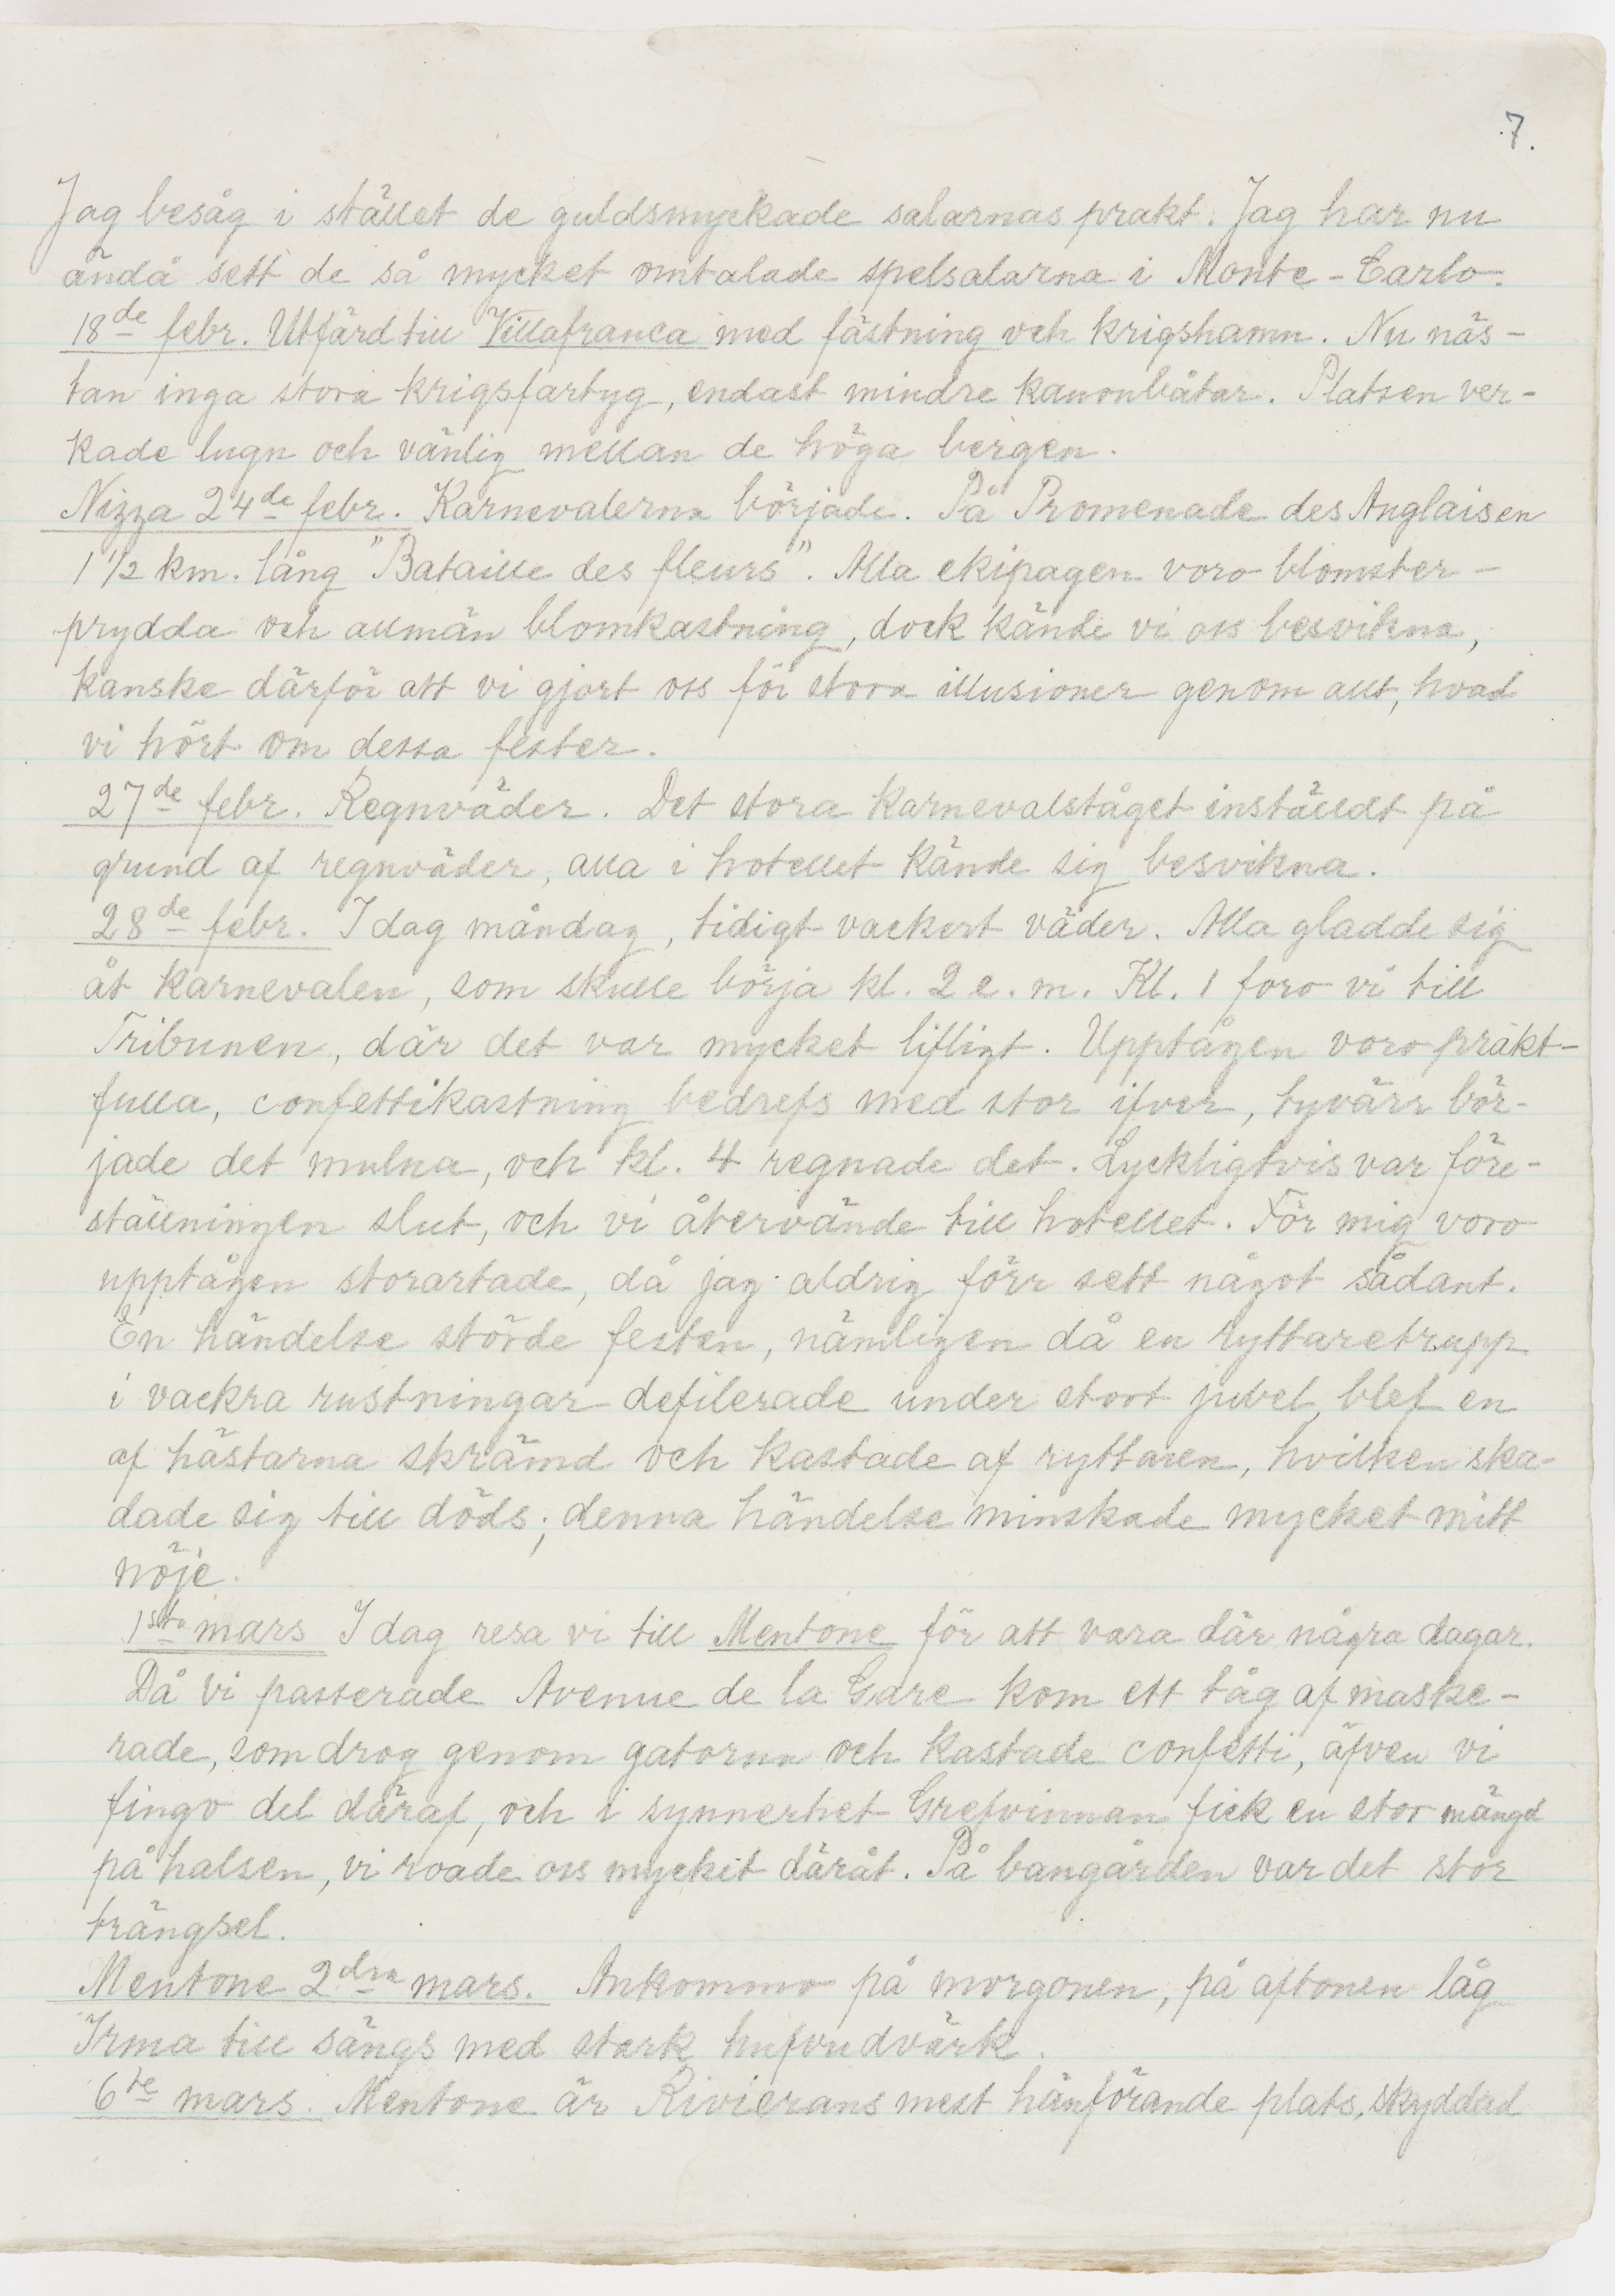 7.
Jag besåg i stället de guldsmyckade salarnas prakt. Jag har nu
ändå sett de så mycket omtalade spelsalarna i Monte-Carlo.
18de febr. Utfärd till Villafranca med fästning och krigshamn. Nu näs-
tan inga stora krigsfartyg, endast mindre kanonbåtar. Platsen ver-
kade lugn och vänlig mellan de höga bergen.
Nizza 24de febr. Karnevalerna började. På Promenade des Anglaisen
1 1/2 km. lång "Bataille des fleurs". Alla ekipagen voro blomster-
prydda och allmän blomkastning, dock kände vi oss besvikna,
kanske därför att vi gjort oss för stora illusioner genom allt, hvad
vi hört om dessa fester.
27de febr. Regnväder. Det stora karnevalståget inställdt på
grund af regnväder, alla i hotellet kände sig besvikna.
28de febr. I dag måndag, tidigt vackert väder. Alla gladde sig
åt karnevalen, som skulle börja kl. 2 e. m. Kl. 1 foro vi till
Tribunen, där det var mycket lifligt. Upptågen voro prakt-
fulla, confettikastning bedrefs med stor ifver, tyvärr bör-
jade det mulna, och kl. 4 regnade det. Lyckligtvis var före-
ställningen slut, och vi återvände till hotellet. För mig voro
upptågen storartade, då jag aldrig förr sett något sådant.
En händelse störde festen, nämligen då en ryttaretrupp
i vackra rustningar defilerade under stort jubel, blef en
af hästarna skrämd och kastade af ryttaren, hvilken ska-
dade sig till döds; denna händelse minskade mycket mitt
nöje.
1sta mars I dag resa vi till Mentone för att vara där några dagar.
Då vi passerade Avenue de la Gare kom ett tåg af maske-
rade, som drog genom gatorna och kastade confetti, äfven vi
fingo del däraf, och i synnerhet Grefvinnan fick en stor mängd
på halsen, vi roade oss mycket däråt. På bangården var det stor
trängsel.
Mentone 2dra mars. Ankommo på morgonen, på aftonen låg
Irma till sängs med stark hufvudvärk.
6te mars. Mentone är Rivierans mest hänförande plats, skyddad